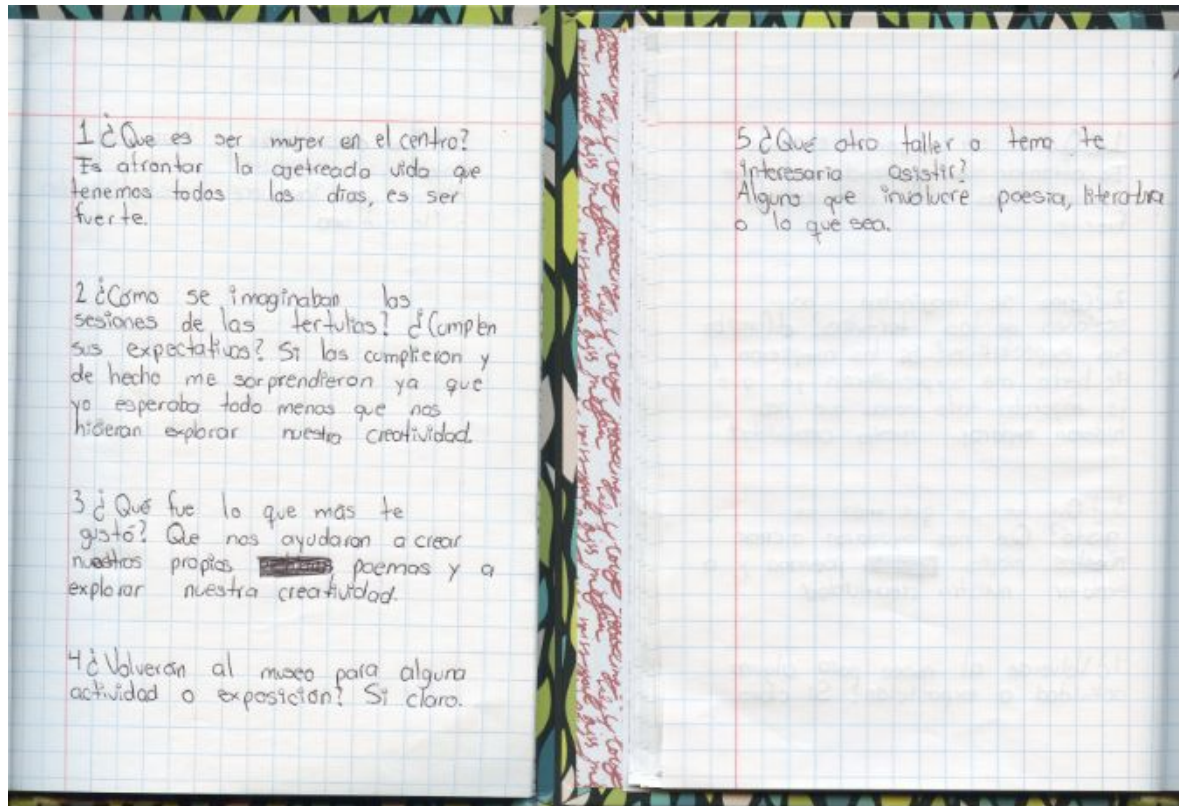 1 ¿Que es ser mujer en el centro?
Es afrontar la ajetreada vida que
tenemos todos los días, es ser
fuerte.
2 ¿Cómo se imaginaban las
sesiones de las tertulias? ¿Cumplen
sus expectativas? Si las cumplieron y
de hecho me sorprendieron ya que
yo esperaba todo menos que nos
hicieran explorar nuestra creatividad.
3 ¿Qué fue lo que más te
gustó? Que nos ayudaran a crear
nuestros propios poemas y a
explorar nuestra creatividad.
4 ¿Volverán al museo para alguna
actividad o exposición? Si claro.
5 ¿Qué otro taller o tema te
interesaría asistir?
Alguno que involucre poesía, literatura
o lo que sea.